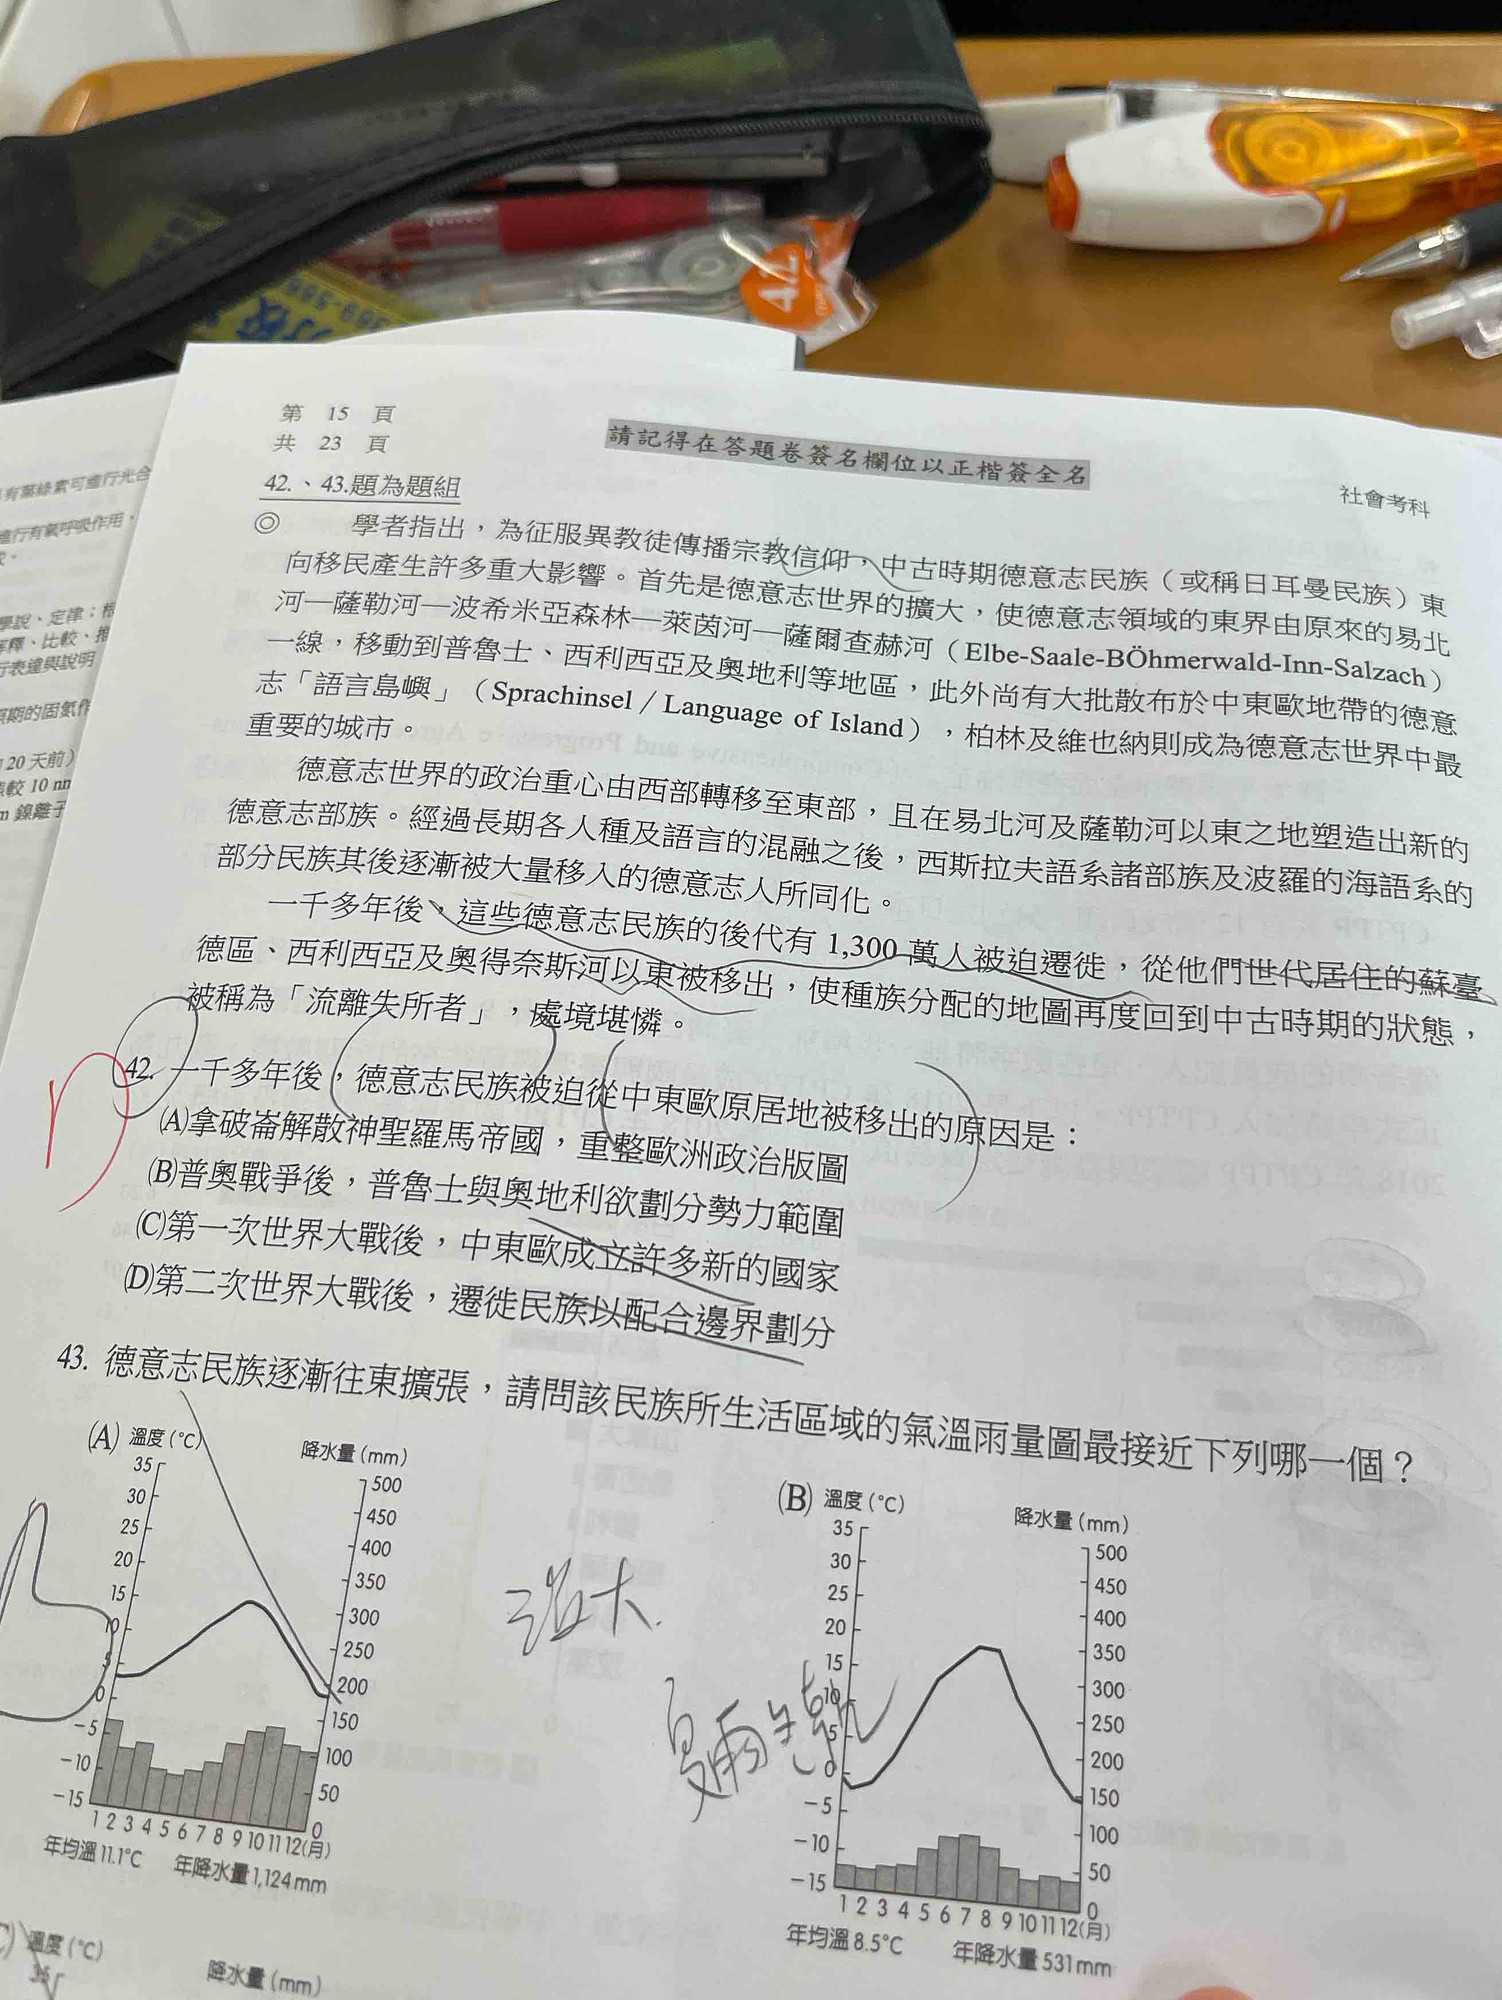 第 15 頁
共 23 頁
請記得在答題卷簽名欄位以正楷簽全名
社會考科
42.、43.題為題組
◎ 學者指出，為征服異教徒傳播宗教信仰，中古時期德意志民族（或稱日耳曼民族）東
向移民產生許多重大影響。首先是德意志世界的擴大，使德意志領域的東界由原來的易北
河—薩勒河—波希米亞森林—萊茵河—薩爾查赫河（Elbe-Saale-BÖhmerwald-Inn-Salzach）
一線，移動到普魯士、西利西亞及奧地利等地區，此外尚有大批散布於中東歐地帶的德意
志「語言島嶼」（Sprachinsel / Language of Island），柏林及維也納則成為德意志世界中最
重要的城市。
德意志世界的政治重心由西部轉移至東部，且在易北河及薩勒河以東之地塑造出新的
德意志部族。經過長期各人種及語言的混融之後，西斯拉夫語系諸部族及波羅的海語系的
部分民族其後逐漸被大量移入的德意志人所同化。
一千多年後，這些德意志民族的後代有 1,300 萬人被迫遷徙，從他們世代居住的蘇臺
德區、西利西亞及奧得奈斯河以東被移出，使種族分配的地圖再度回到中古時期的狀態，
被稱為「流離失所者」，處境堪憐。
42. 一千多年後，德意志民族被迫從中東歐原居地被移出的原因是：
(A)拿破崙解散神聖羅馬帝國，重整歐洲政治版圖
(B)普奧戰爭後，普魯士與奧地利欲劃分勢力範圍
(C)第一次世界大戰後，中東歐成立許多新的國家
(D)第二次世界大戰後，遷徙民族以配合邊界劃分
43. 德意志民族逐漸往東擴張，請問該民族所生活區域的氣溫雨量圖最接近下列哪一個？
(A) 溫度(℃)
降水量(mm)
35
30
25
20
15
10
5
0
−5
−10
−15
500
450
400
350
300
250
200
150
100
50
0
1 2 3 4 5 6 7 8 9 10 11 12(月)
年均溫11.1℃ 年降水量1,124mm
溫大.
夏雨
(B) 溫度(℃)
降水量(mm)
35
30
25
20
15
10
5
0
−5
−10
−15
500
450
400
350
300
250
200
150
100
50
0
1 2 3 4 5 6 7 8 9 10 11 12(月)
年均溫8.5℃ 年降水量531mm
溫度(℃)
35
降水量(mm)
有葉綠素可進行光合
進行有氧呼吸作用，
學說、定律；
解釋、比較、推
行表達與說明
期的固氮作
20 天前）
較 10 nm
鎳離子